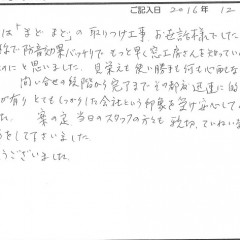 ご記入日 2016年 12
は「まど まど」の取りつけ工事、お世話様でした
防音効果バッチリで もっと早く窓工房さんを
のにと思いました。見栄えも使い勝手も何も心配な
問い合せの段階から完了まで その都度迅速に的
が有り とてもしっかりした会社という印象を受け安心して
た。 案の定 当日のスタッフの方々も 親切、ていねい
をして下さいました。
うございました。